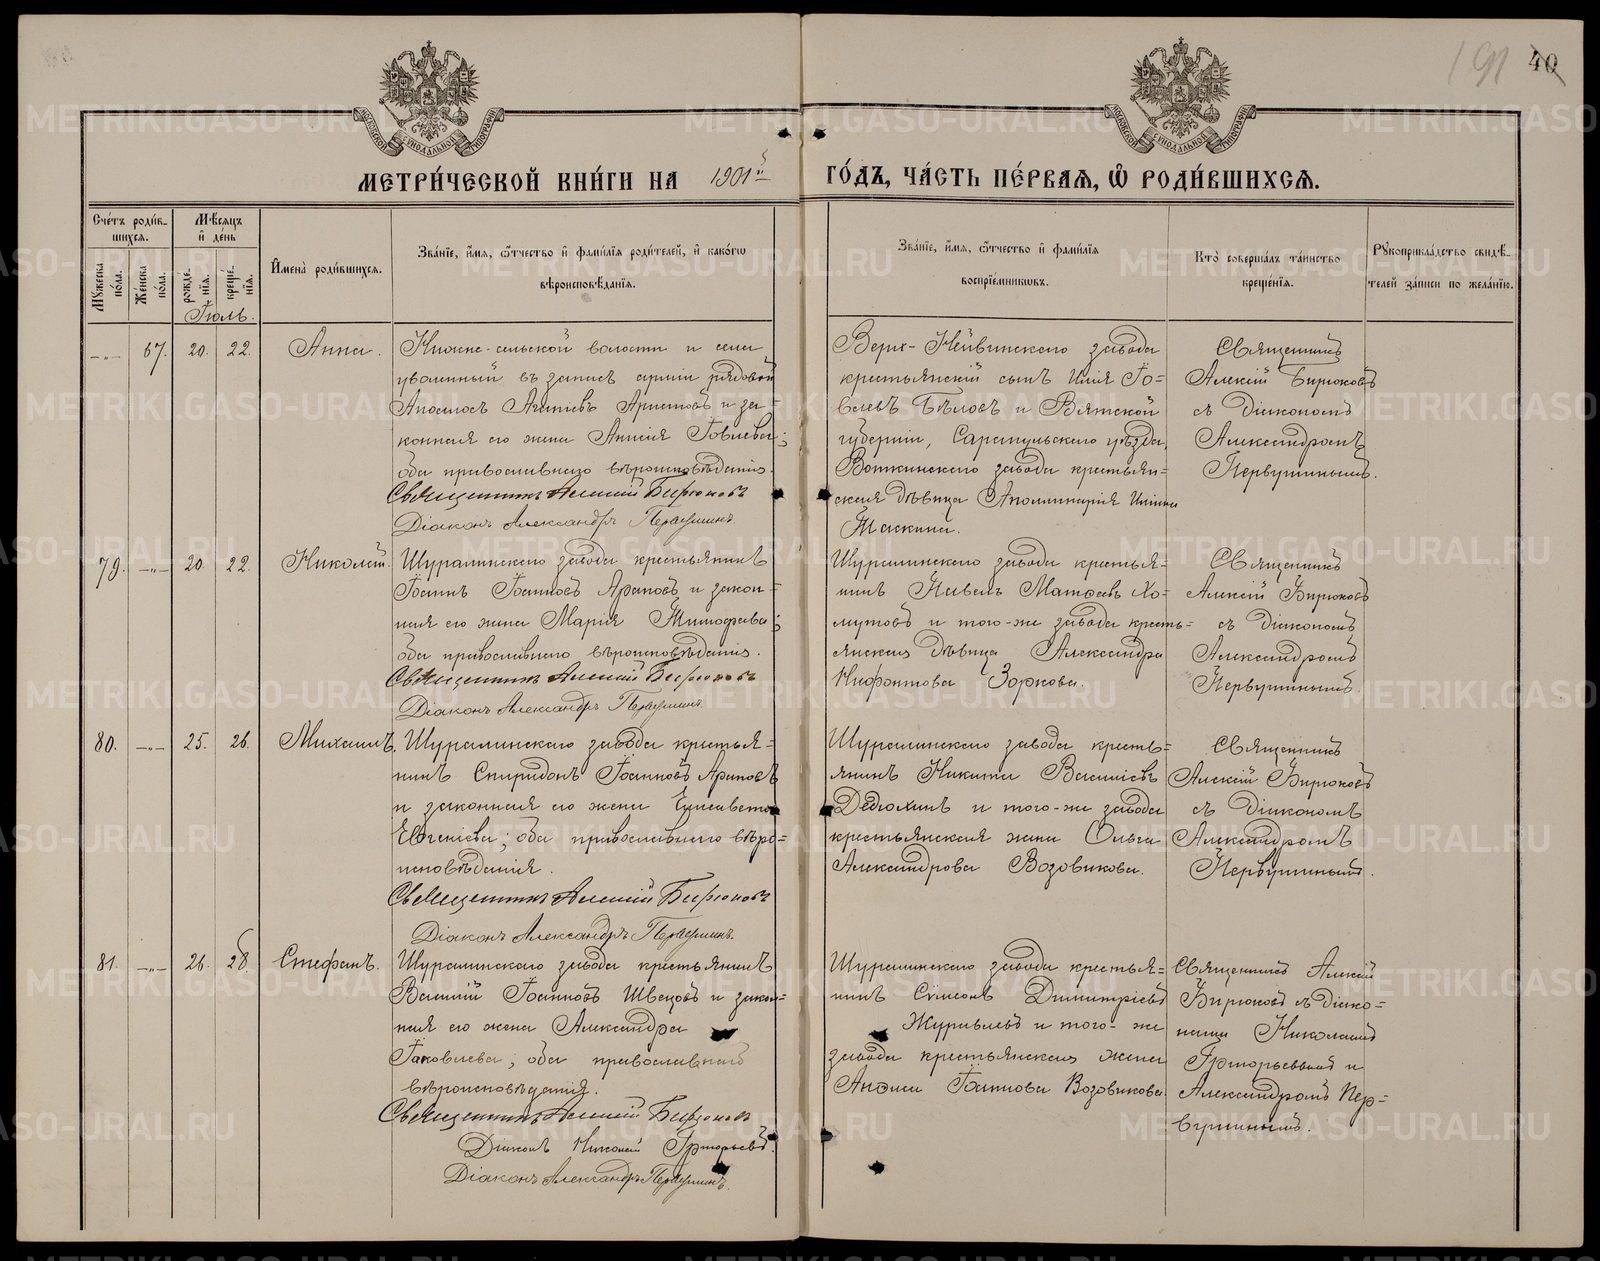 191 40
МОСКОВСКОЙ СѴНОДАЛЬНОЙ ТИПОГРАФІИ
МОСКОВСКОЙ СѴНОДАЛЬНОЙ ТИПОГРАФІИ
МЕТРИ́ЧЕСКОЙ КНИ́ГИ НА 1901й ГО́ДЪ, ЧА́СТЬ ПЕ́РВАѦ, Ѡ РОДИ́ВШИХСѦ.
Сче́тъ роди́в-
шихсѧ.
Мꙋ́жеска по́ла.
Же́нска по́ла.
Мѣ́сѧцъ
и҆ де́нь
рожде́-
нїѧ.
креще́-
нїѧ.
Іюль.
И҆мена̀ роди́вшихсѧ.
Зва́нїе, и҆́мѧ, ѻ҆́тчество и҆ фами́лїѧ роди́телей, и҆ како́гѡ
вѣроисповѣ́данїѧ.
Зва́нїе, и҆́мѧ, ѻ҆́тчество и҆ фами́лїѧ
воспрїе́мникѡвъ.
Кто̀ соверша́лъ та́инство
креще́нїѧ.
Рꙋкоприкла́дство свидѣ́-
телей за́писи по жела́нїю.
—„— 67. 20. 22. Анна.
сельской волости и села
уволенный въ запасъ арміи рядовой
Аристовъ и за-
конная его жена Анисія
оба православнаго вѣроисповѣданія.
Священникъ Алексій Бирюковъ
Діаконъ Александръ Первушинъ.
Верх-Нейвинскаго завода
крестьянскій сынъ Илія Іо-
влевъ Бѣловъ и Вятской
губерніи, Сарапульскаго уѣзда,
Воткинскаго завода крестьян-
ская дѣвица Аполлинарія Ильина
Таскина.
Священникъ
Алексій Бирюковъ
съ діакономъ
Александромъ
Первушинымъ.
79. —„— 20. 22. Николай.
Шуралинскаго завода крестьянинъ
Іоаннъ Іоанновъ Араповъ и закон-
ная его жена Марія Тимофѣева;
оба православнаго вѣроисповѣданія.
Священникъ Алексій Бирюковъ
Діаконъ Александръ Первушинъ.
Шуралинскаго завода крестья-
нинъ Павелъ Матѳеевъ Хо-
мутовъ и того-же завода кресть-
янская дѣвица Александра
Нифонтова Зоркова.
Священникъ
Алексій Бирюковъ
съ діакономъ
Александромъ
Первушинымъ.
80. —„— 25. 26. Михаилъ.
Шуралинскаго завода крестья-
нинъ Спиридонъ Іоанновъ Араповъ
и законная его жена Елисавета
Евгеніева; оба православнаго вѣро-
исповѣданія.
Священникъ Алексій Бирюковъ
Діаконъ Александръ Первушинъ.
Шуралинскаго завода кресть-
янинъ Никита Василіевъ
Дедюхинъ и того-же завода
крестьянская жена Ольга
Александрова Возовикова.
Священникъ
Алексій Бирюковъ
съ діакономъ
Александромъ
Первушинымъ.
81. —„— 26. 28. Стефанъ.
Шуралинскаго завода крестьянинъ
Василій Іоанновъ Швецовъ и закон-
ная его жена Александра
Іаковлева; оба православнаго
вѣроисповѣданія.
Священникъ Алексій Бирюковъ
Діаконъ Николай Григорьевъ.
Діаконъ Александръ Первушинъ.
Шуралинскаго завода крестья-
нинъ Сѵмеонъ Димитріевъ
Журавлевъ и того-же
завода крестьянская жена
Анѳиса Іоаннова Возовикова.
Священникъ Алексій
Бирюковъ съ діако-
нами Николаемъ
Григорьевымъ и
Александромъ Пер-
вушинымъ.
METRIKI.GASO-URAL.RU